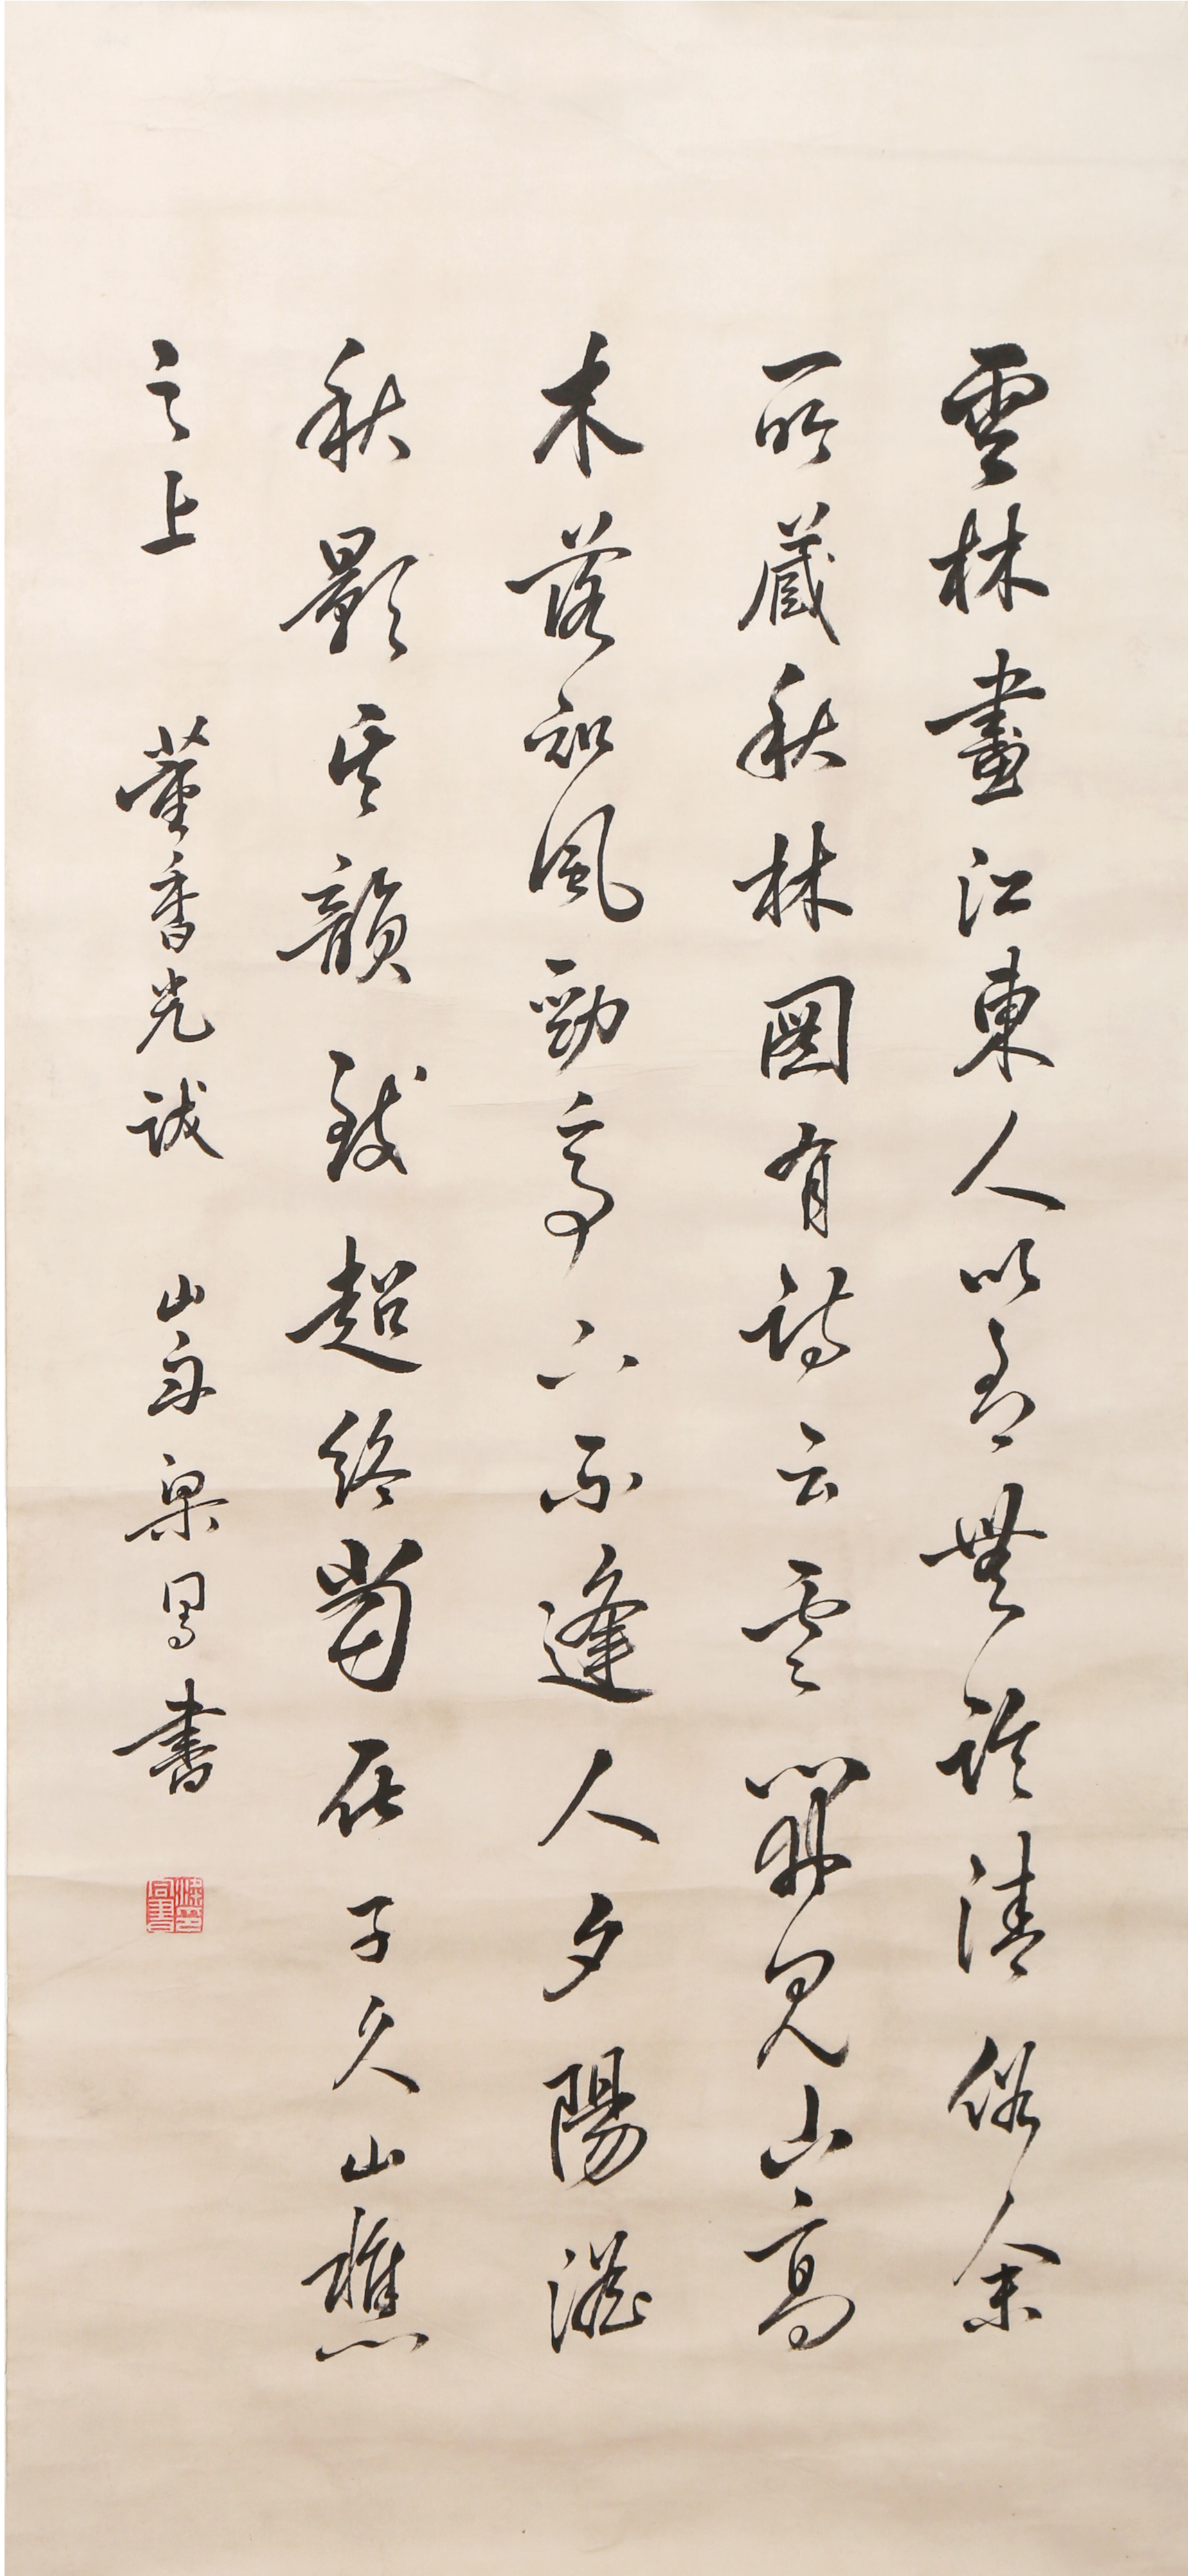 雲林畫江東人以有無論清俗余
所藏秋林圖有詩云雲開見山高
木落知風勁亭下不逢人夕陽澹
秋影其韻致超終當在子久山樵
之上 董香光 山舟梁同書